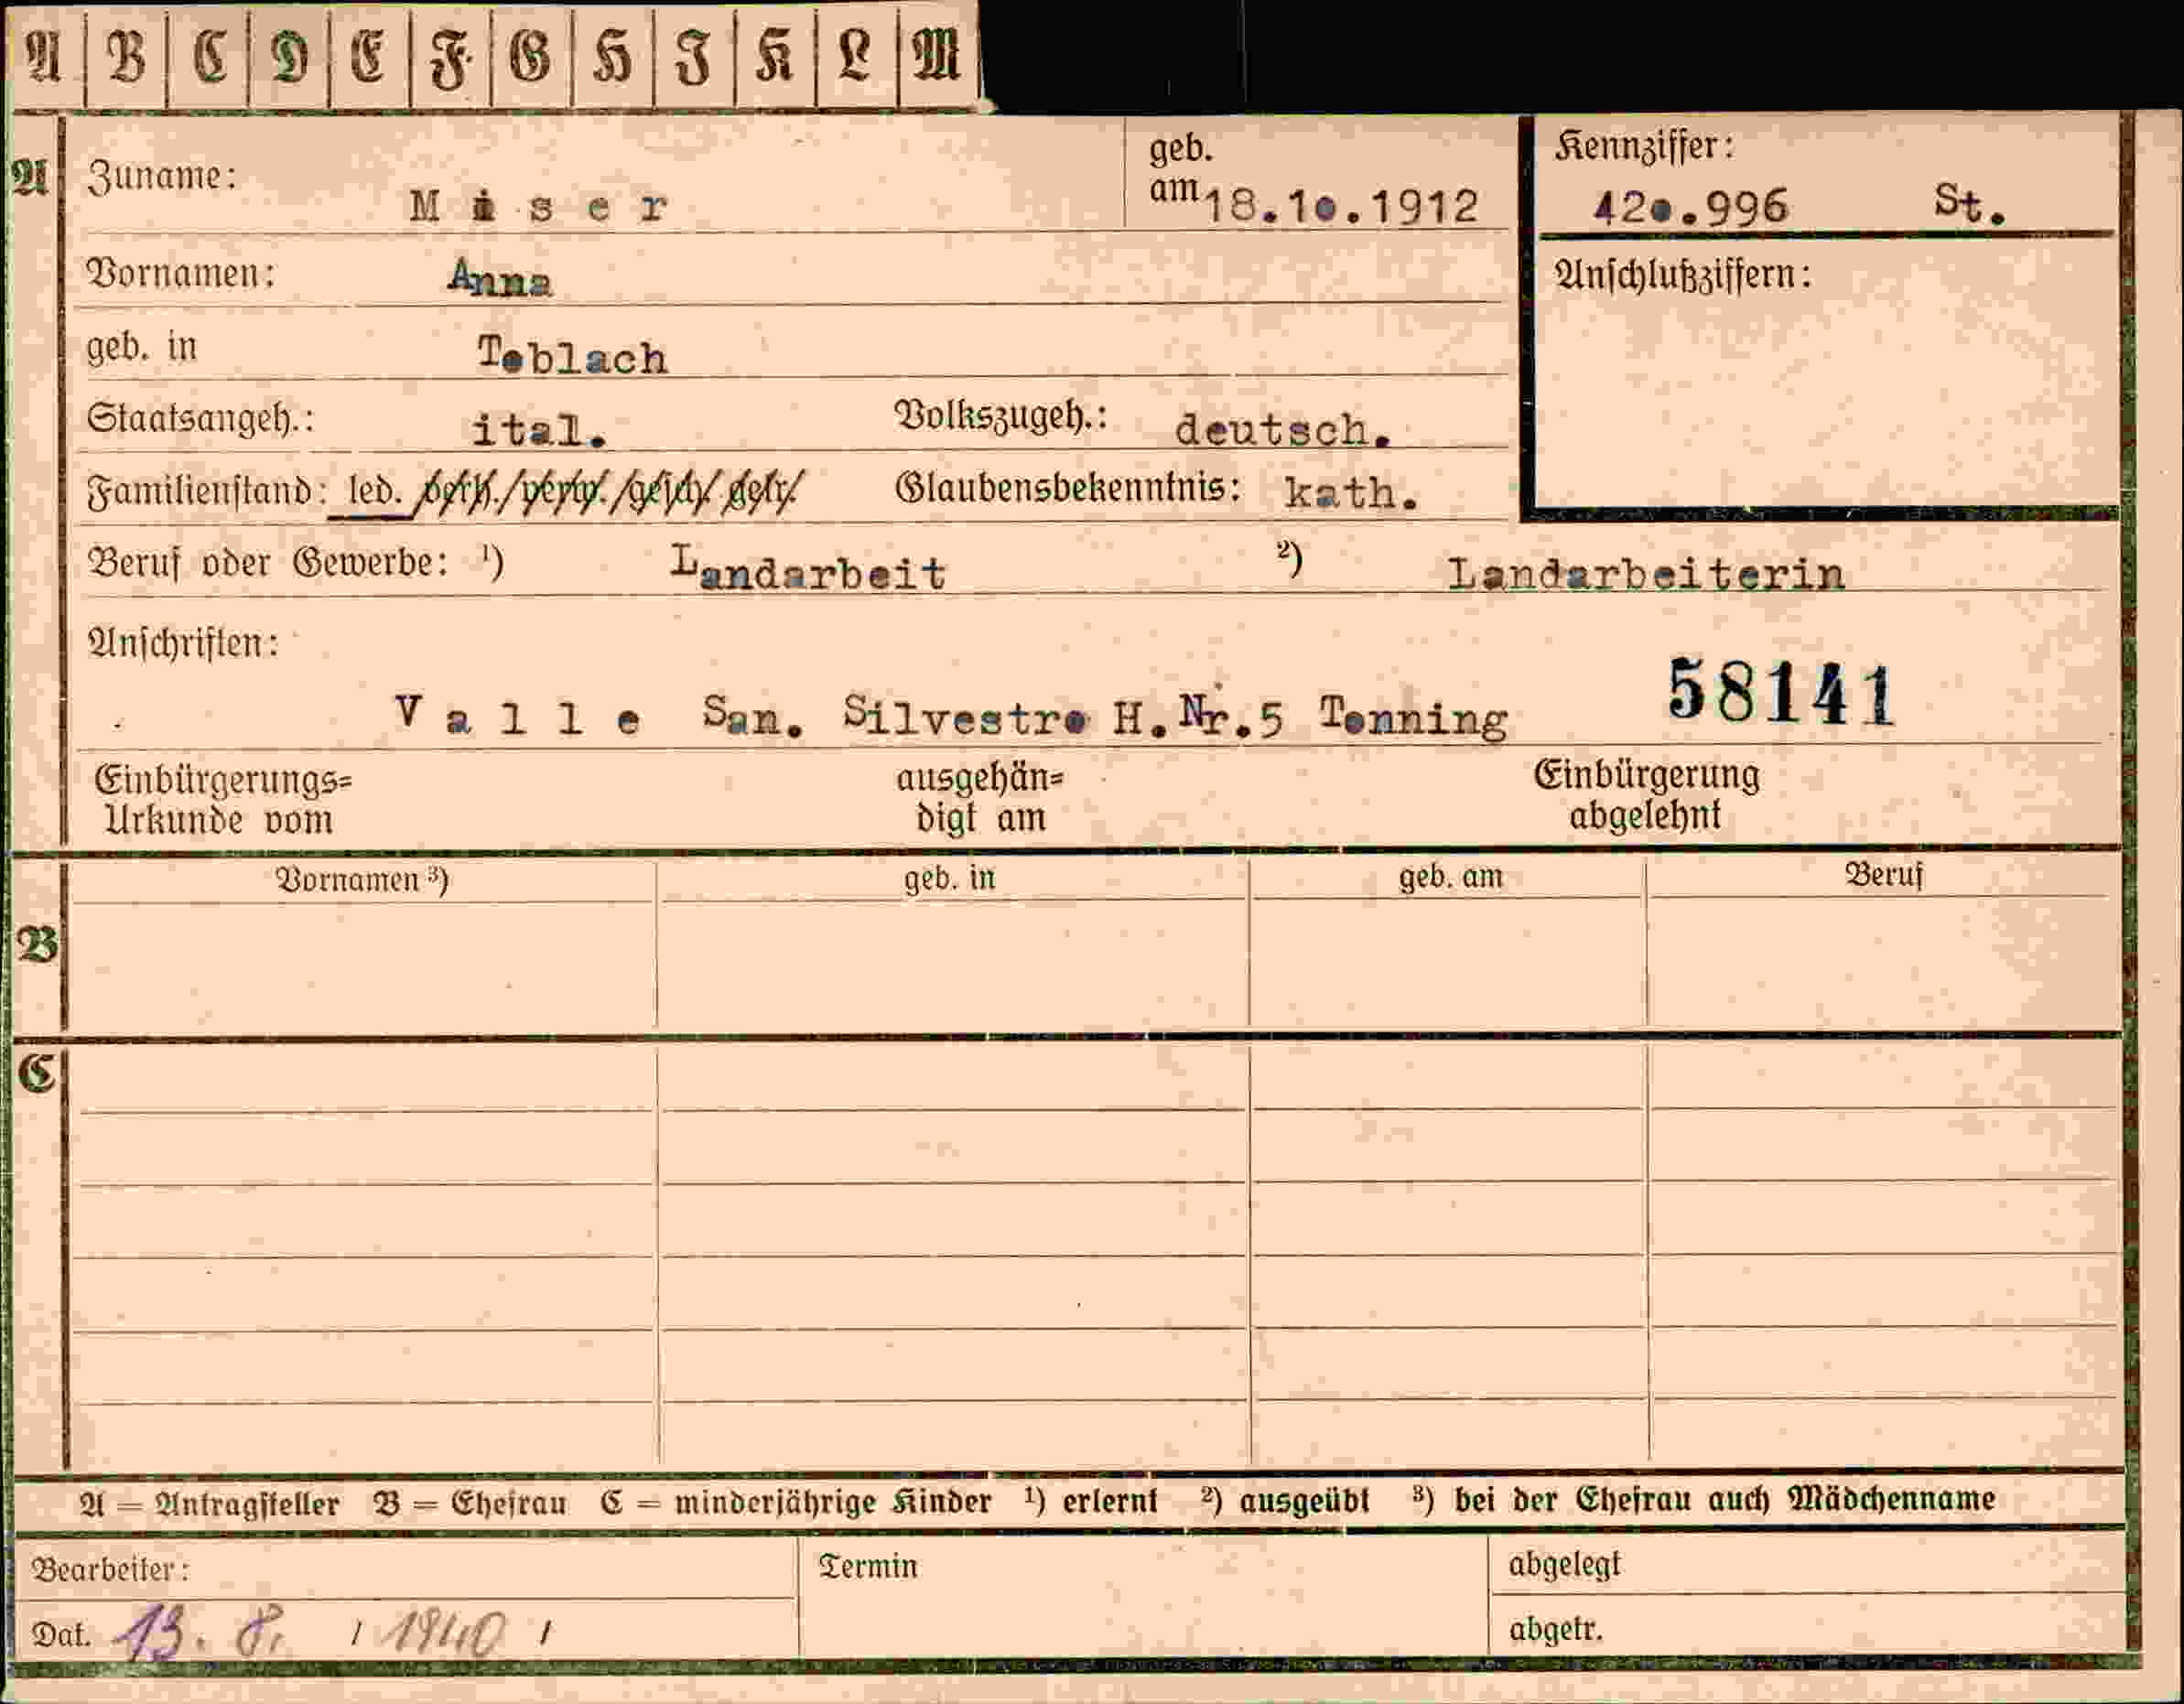 A B C D E F G H I K L M
A Zuname: geb.
am 18.10.1912 Kennziffer:
420.996 St.
Vornamen: Anna Anschlußziffern:
geb. in Toblach
Staatsangeh.: ital. Volkszugeh.: deutsch.
Familienstand: led. verh./verw./gesch./getr. Glaubensbekenntnis: kath.
Beruf oder Gewerbe: ¹) Landarbeit ²) Landarbeiterin
Anschriften:
58141
Valle San. Silvestro H.Nr.5 Tonning
Einbürgerungs=
Urkunde vom ausgehän=
digt am Einbürgerung
abgelehnt
Vornamen ³) geb. in geb. am Beruf
B
C
A = Antragsteller B = Ehefrau C = minderjährige Kinder ¹) erlernt ²) ausgeübt ³) bei der Ehefrau auch Mädchenname
Bearbeiter: Termin abgelegt
Dat. 13. 8. / 1940 / abgetr.